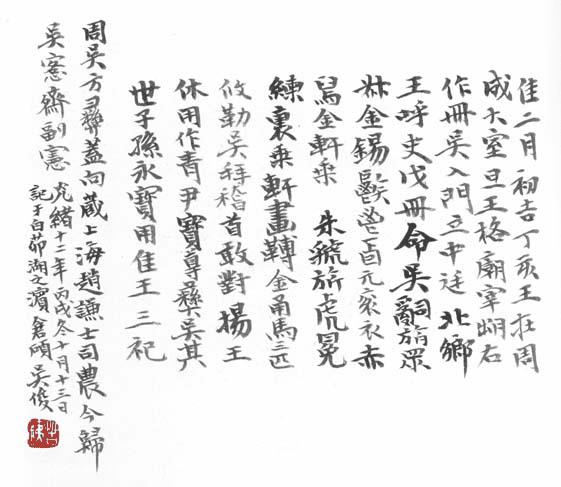 隹二月初吉丁亥王在周
成大室旦王格廟宰朏右
作冊吳入門立中廷北鄉
王呼史戊冊命吳旃眾
金錫鬯卣元袞衣赤
舄金軒乘 朱虢旂虎冕
練裏乘軒畫轉金甬馬亖匹
攸勒吳拜稽首敢對揚王
休用作青尹寶尊彝吳其
世子孫永寶用隹王三祀
周吳方彝蓋向藏上海趙謙士司農今歸
吳愙齋副憲
光緒十二年丙戌冬十月十三日
記于白茆湖之濱 倉碩吳俊